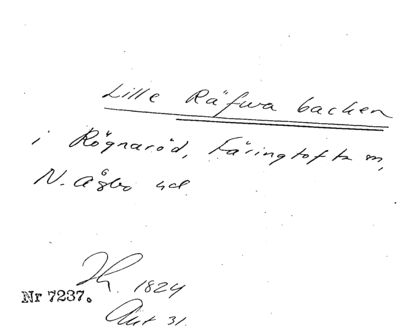 Lille Räfwa backen
i Rögnaröd, Färingtofta sn,
N. Åsbo hd
Th. 1824
Nr 7237.
Aut 31.